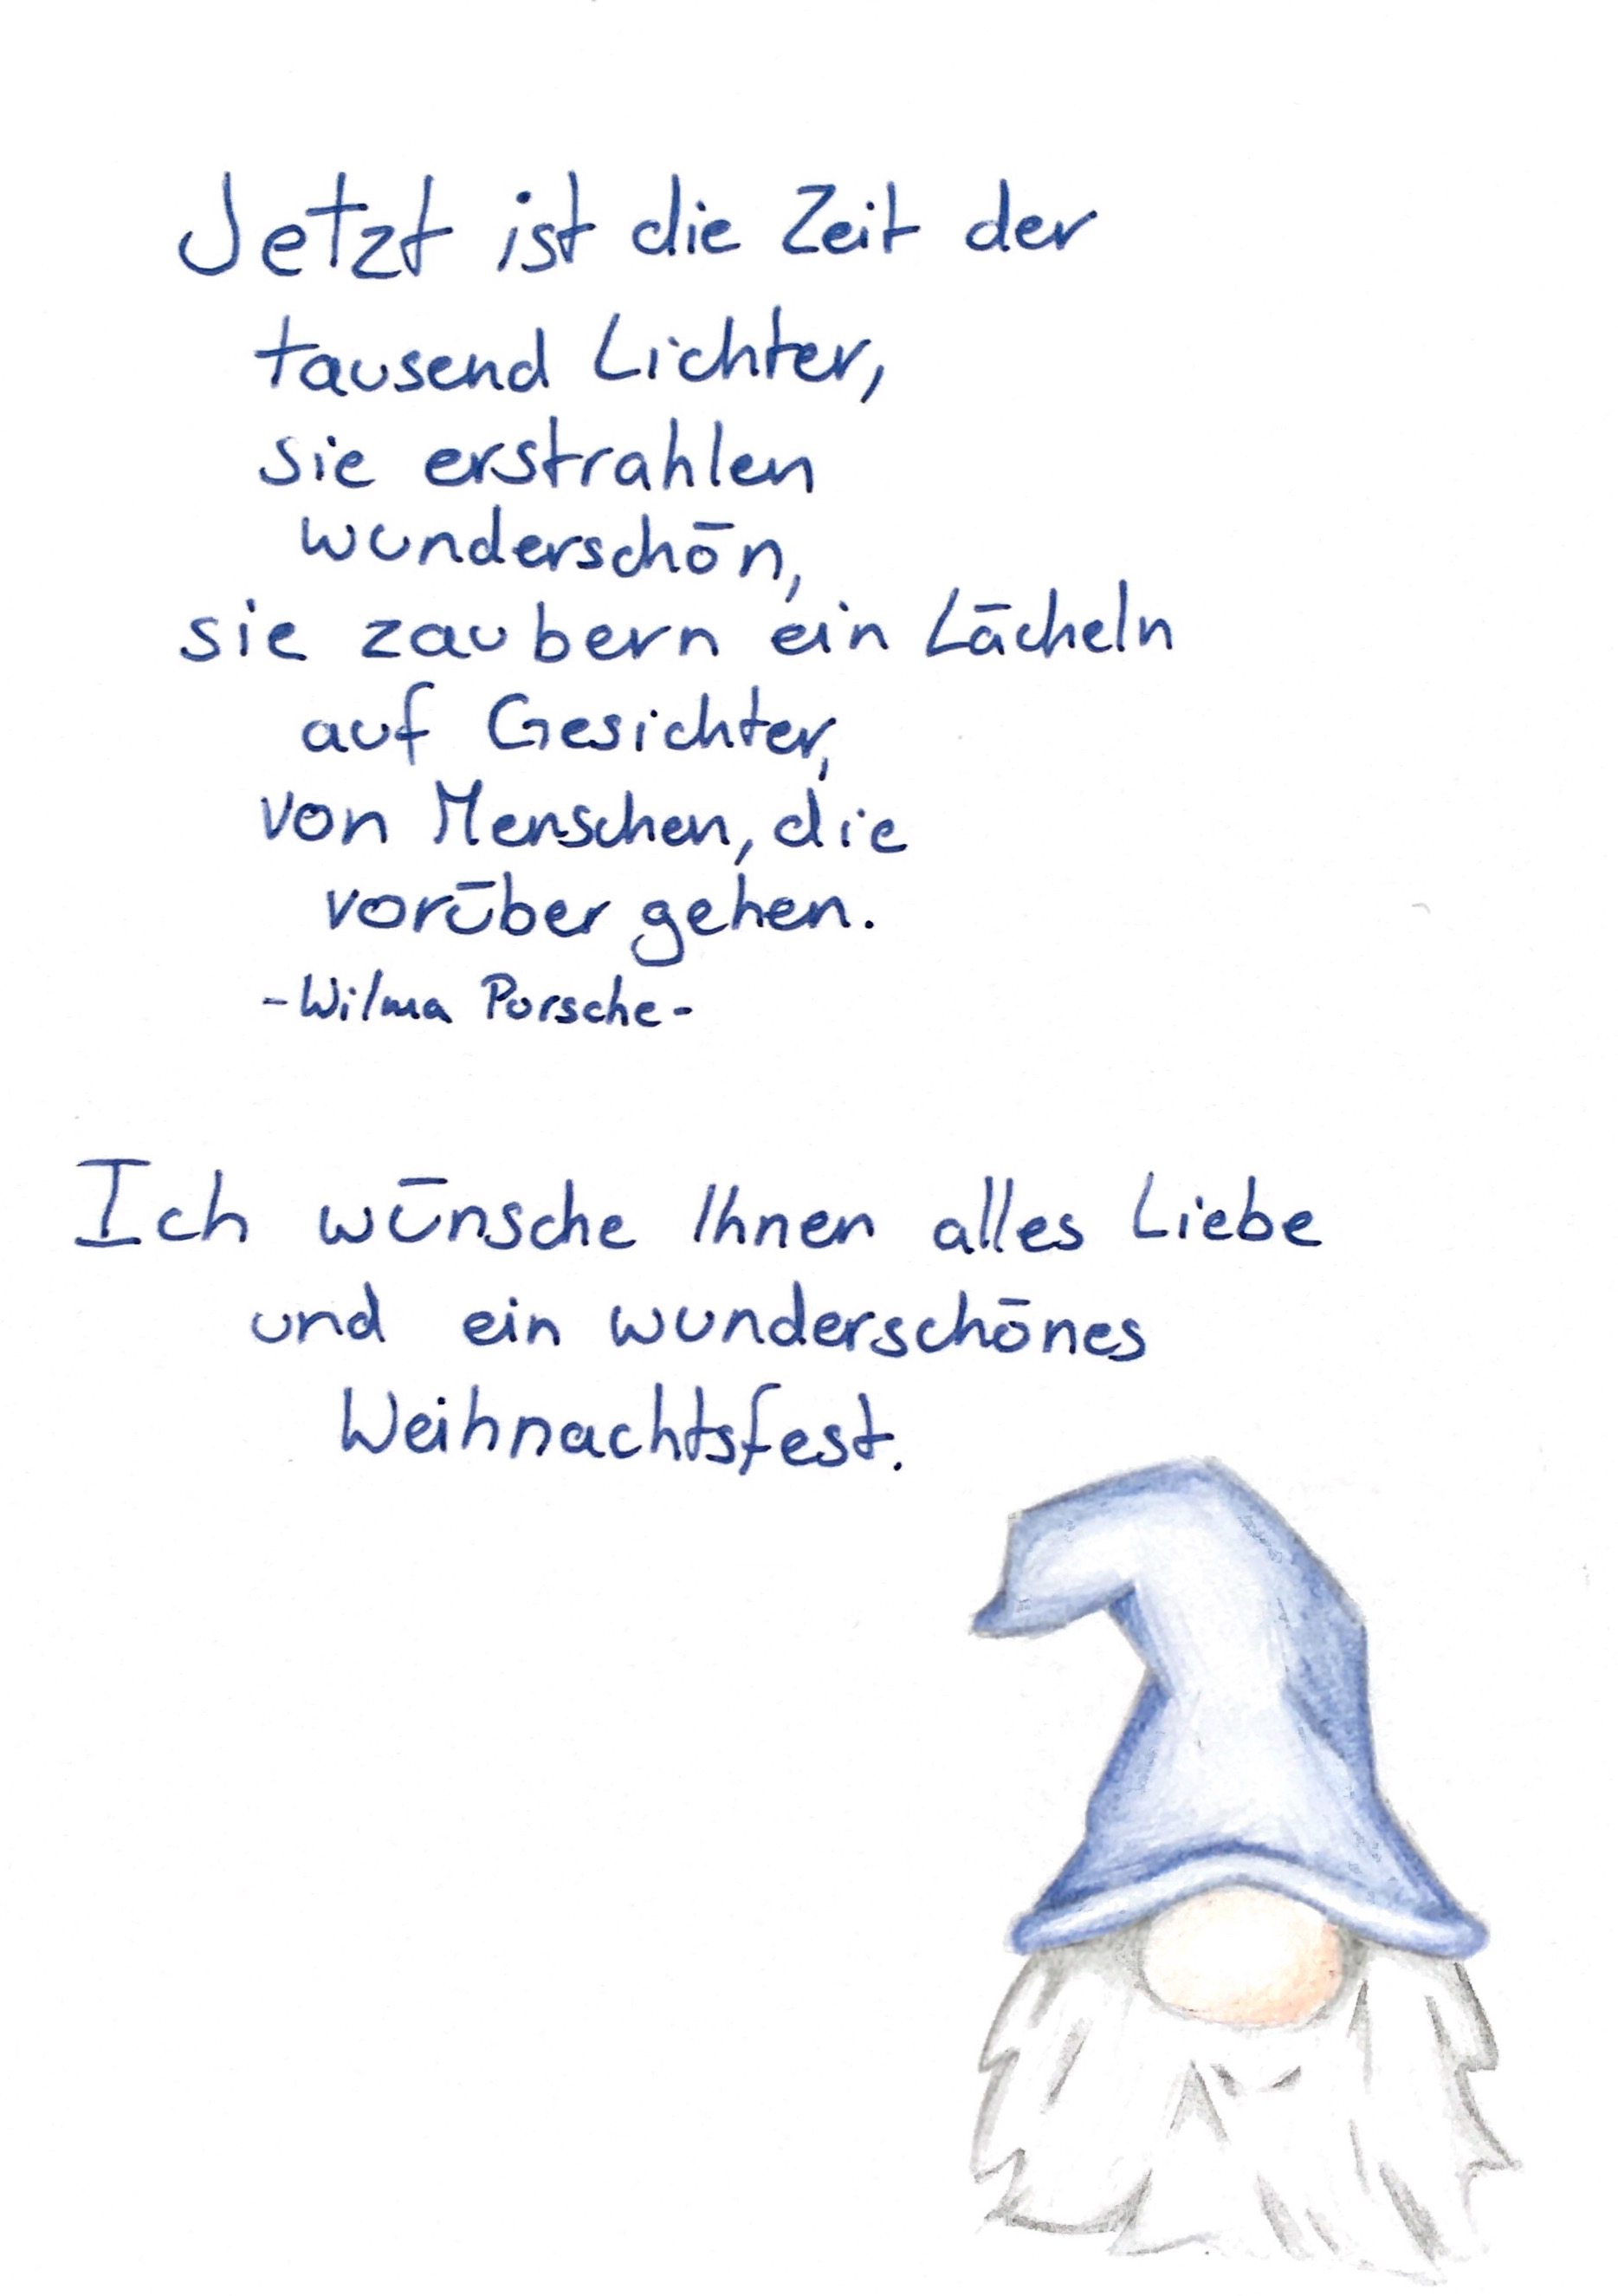 Jetzt ist die Zeit der
tausend Lichter,
sie erstrahlen
wunderschön,
sie zaubern ein Lächeln
auf Gesichter,
von Menschen, die
vorüber gehen.
-Wilma Porsche-
Ich wünsche Ihnen alles Liebe
und ein wunderschönes
Weihnachtsfest.